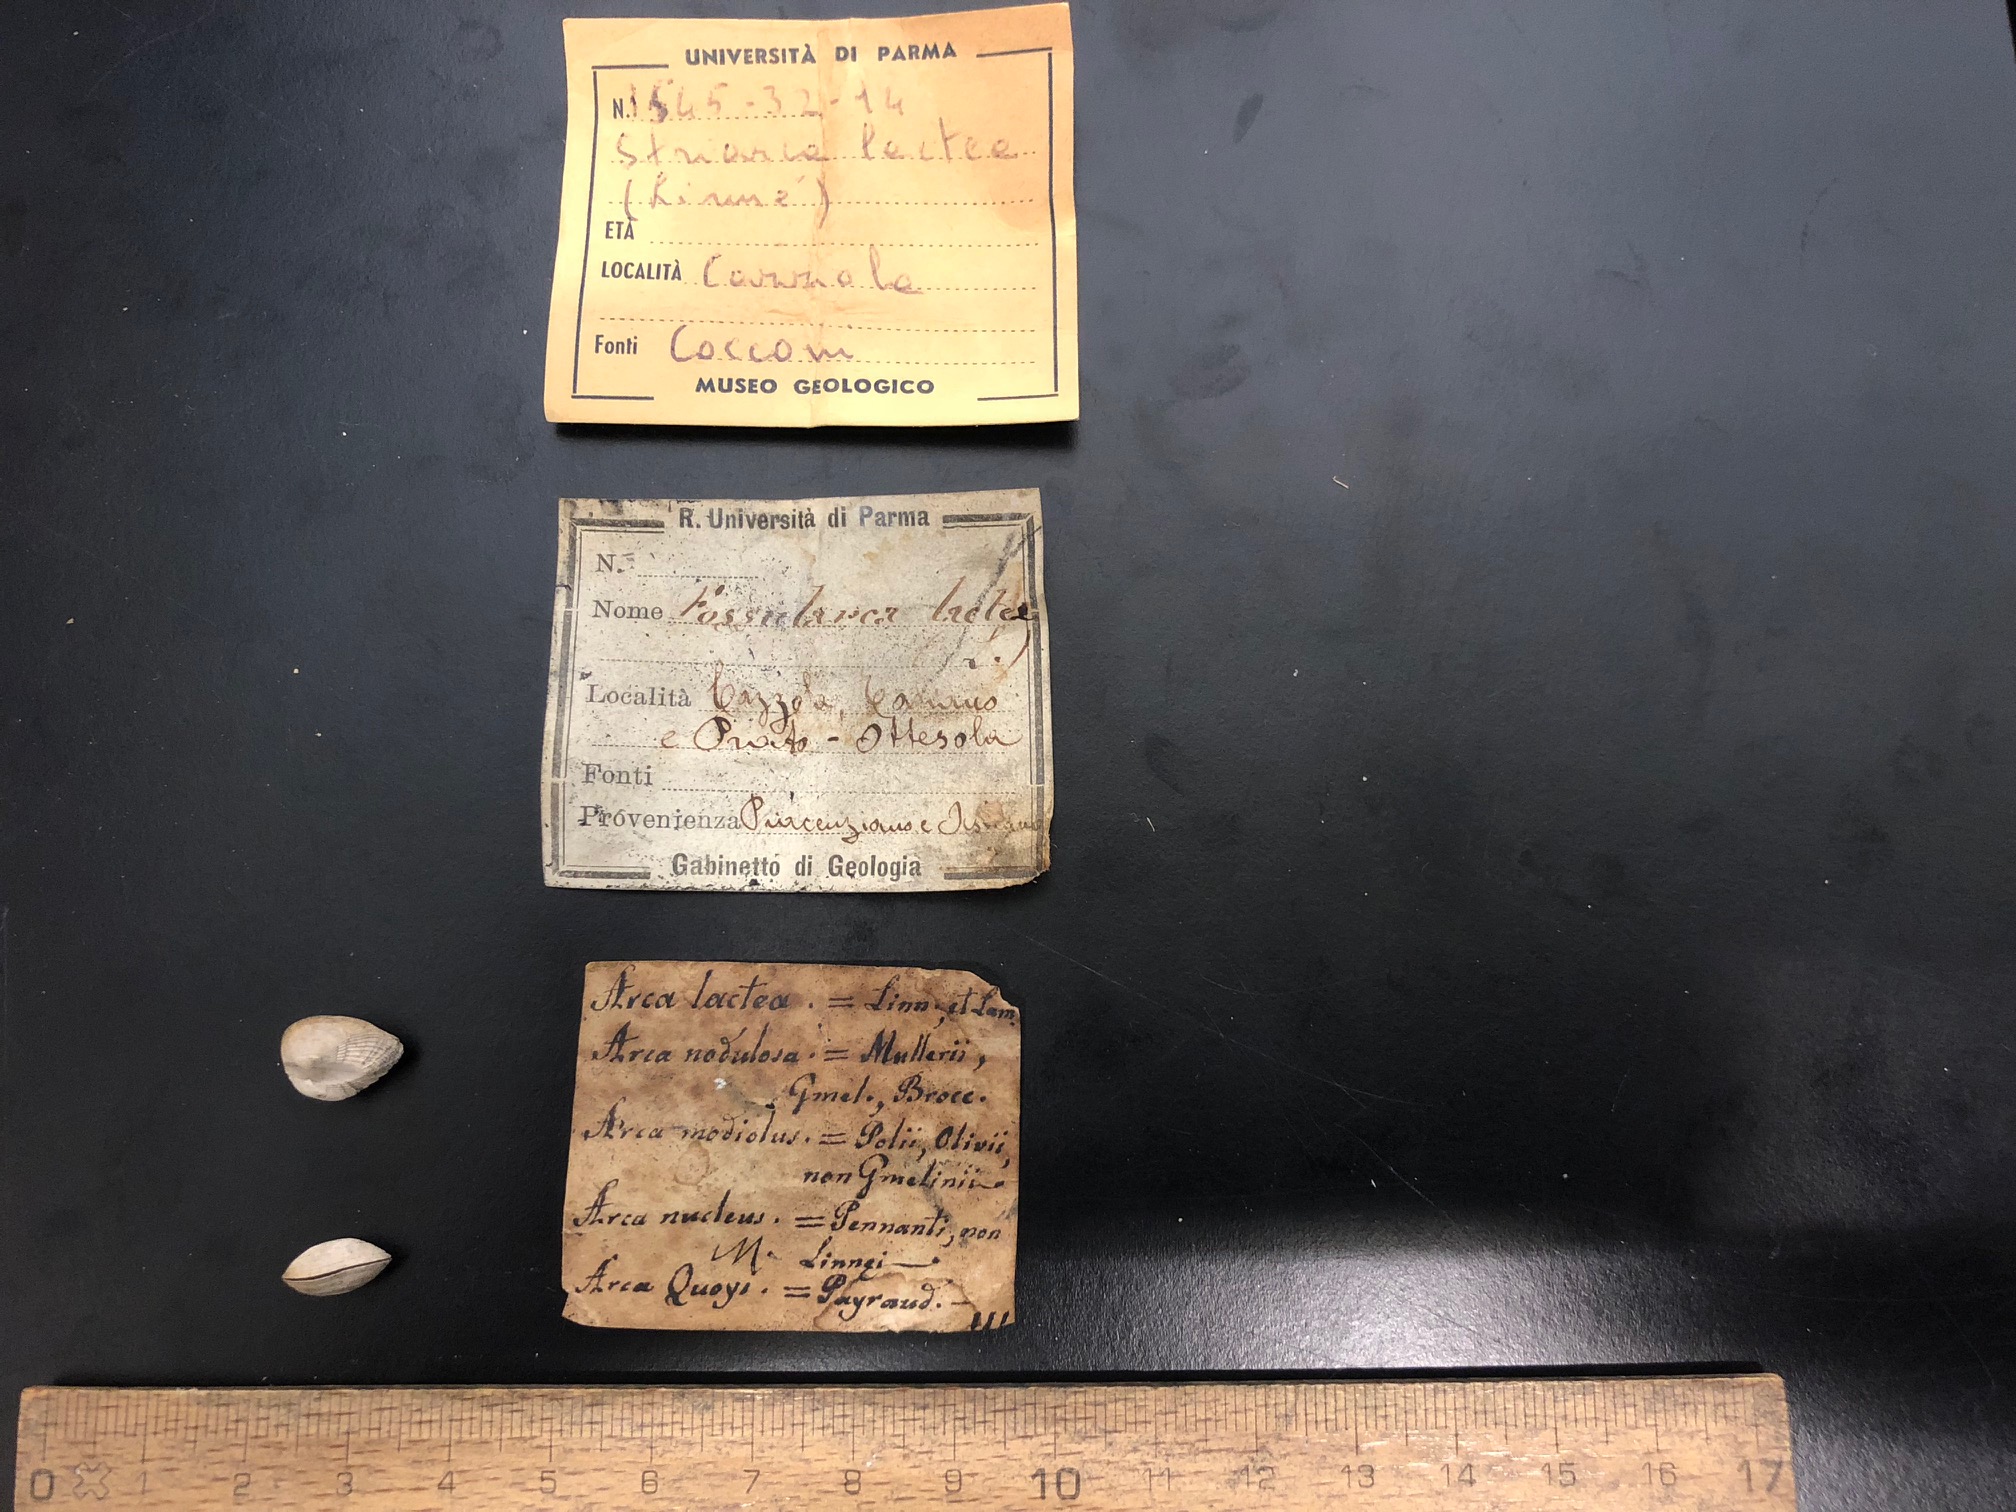 UNIVERSITÀ DI PARMA
N. 1545-32-14
Striarca lactea
(Linné)
ETÀ
LOCALITÀ
Fonti Cocconi
MUSEO GEOLOGICO
R. Università di Parma
N.
Nome Fossularca lactea
L.)
Località Cozzola,
e Prato-Ottesola
Fonti
Provenienza Piacenziano e
Gabinetto di Geologia
Arca lactea. = Linn., et Lam.
Arca nodulosa. = Mullerii,
Gmel., Brocc.
Arca modiolus. = Polii, Olivii,
non Gmelinii
Arca nucleus. = Pennanti, non
M. Linnei
Arca Quoyi. = Payraud.
0 1 2 3 4 5 6 7 8 9 10 11 12 13 14 15 16 17